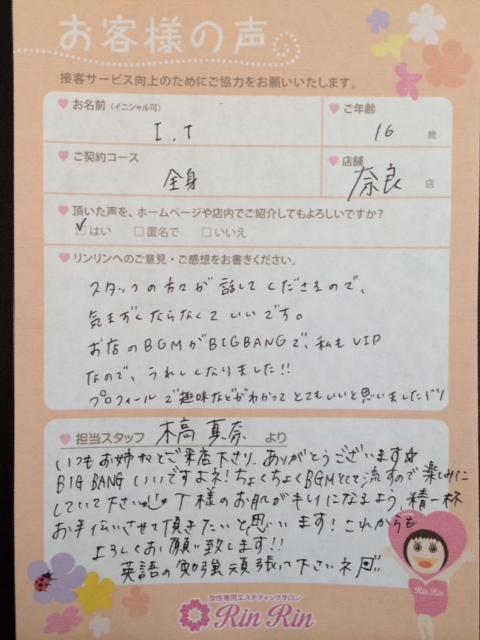 お客様の声
接客サービス向上のためにご協力をお願いいたします。
お名前(イニシャル可)
I.T
ご年齢
16 歳
ご契約コース
全身
店舗
奈良 店
頂いた声を、ホームページや店内でご紹介してもよろしいですか?
はい □匿名で □いいえ
リンリンへのご意見・ご感想をお書きください。
スタッフの方々が話してくださるので、
気まずくならなくていいです。
お店のBGMがBIGBANGで、私もVIP
なので、うれしくなりました!!
プロフィールで趣味などがわかってとてもいいと思いました
担当スタッフ 木高 真奈 より
いつもお姉様とご来店下さり、ありがとうございます☆
BIG BANG いいですよネ!ちょくちょくBGMとして流すので楽しみに
していて下さい T様のお肌がキレイになるよう、精一杯
お手伝いさせて頂きたいと思います!これからも
よろしくお願い致します!!
英語の勉強頑張って下さいネ
Rin Rin
女性専用エステティックサロン
Rin Rin